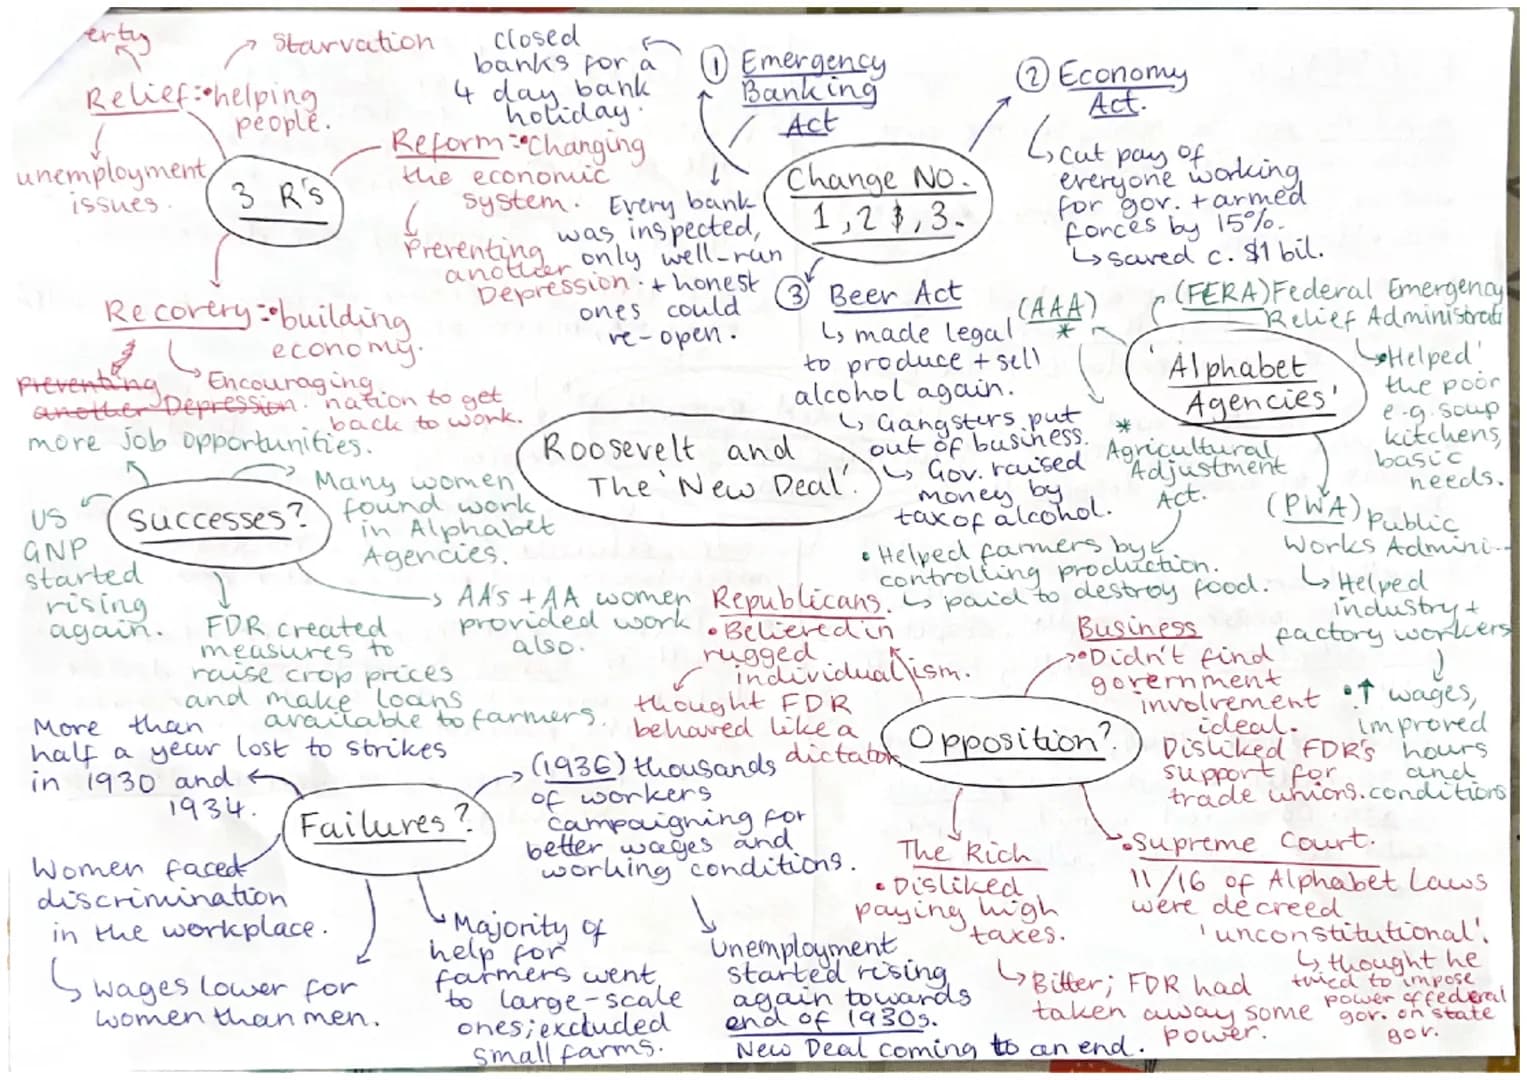 Roosevelt and
The 'New Deal'.
3 R's
erty
Starvation
Relief: • helping
people.
unemployment
issues.
Reform: • Changing
the economic
system.
Preventing
another
Depression.
Recovery: • building
economy.
preventing
another Depression.
Encouraging
nation to get
back to work.
Change NO.
1, 2 &, 3.
① Emergency
Banking
Act
closed
banks for a
4 day bank
holiday.
Every bank
was inspected,
only well-run
+ honest
ones could
re-open.
② Economy
Act.
Cut pay of
everyone working
for gov. + armed
forces by 15%.
saved c. $1 bil.
③ Beer Act
made legal
to produce + sell
alcohol again.
Gangsters put
out of business.
Gov. raised
money by
tax of alcohol.
'Alphabet
Agencies'
(AAA)
*
(FERA) Federal Emergency
Relief Administrati
• Helped
the poor
e.g. soup
kitchens,
basic
needs.
*
Agricultural
Adjustment
Act.
• Helped farmers by
controlling production.
paid to destroy food.
(PWA) Public
Works Admini--
Helped
industry +
factory workers
• ↑ wages,
improved
hours
and
conditions
Successes?
more job opportunities.
Many women
found work
in Alphabet
Agencies.
US
GNP
started
rising
again.
FDR created
measures to
raise crop prices
and make loans
available to farmers.
AA's + AA women
provided work
also.
Opposition?
Republicans.
• Believed in
rugged
individualism.
thought FDR
behaved like a
dictator
Business
• Didn't find
government
involvement
ideal.
Disliked FDR's
support for
trade unions.
The Rich
• Disliked
paying high
taxes.
Bitter; FDR had
taken away some
power.
• Supreme Court.
11/16 of Alphabet Laws
were decreed
'unconstitutional'.
thought he
tried to impose
power of federal
gov. on state
gov.
Failures?
More than
half a year lost to strikes
in 1930 and
1934.
(1936) thousands
of workers
campaigning for
better wages and
working conditions.
Women faced
discrimination
in the workplace.
wages lower for
women than men.
Majority of
help for
farmers went
to large-scale
ones; excluded
small farms.
Unemployment
started rising
again towards
end of 1930s.
New Deal coming to an end.